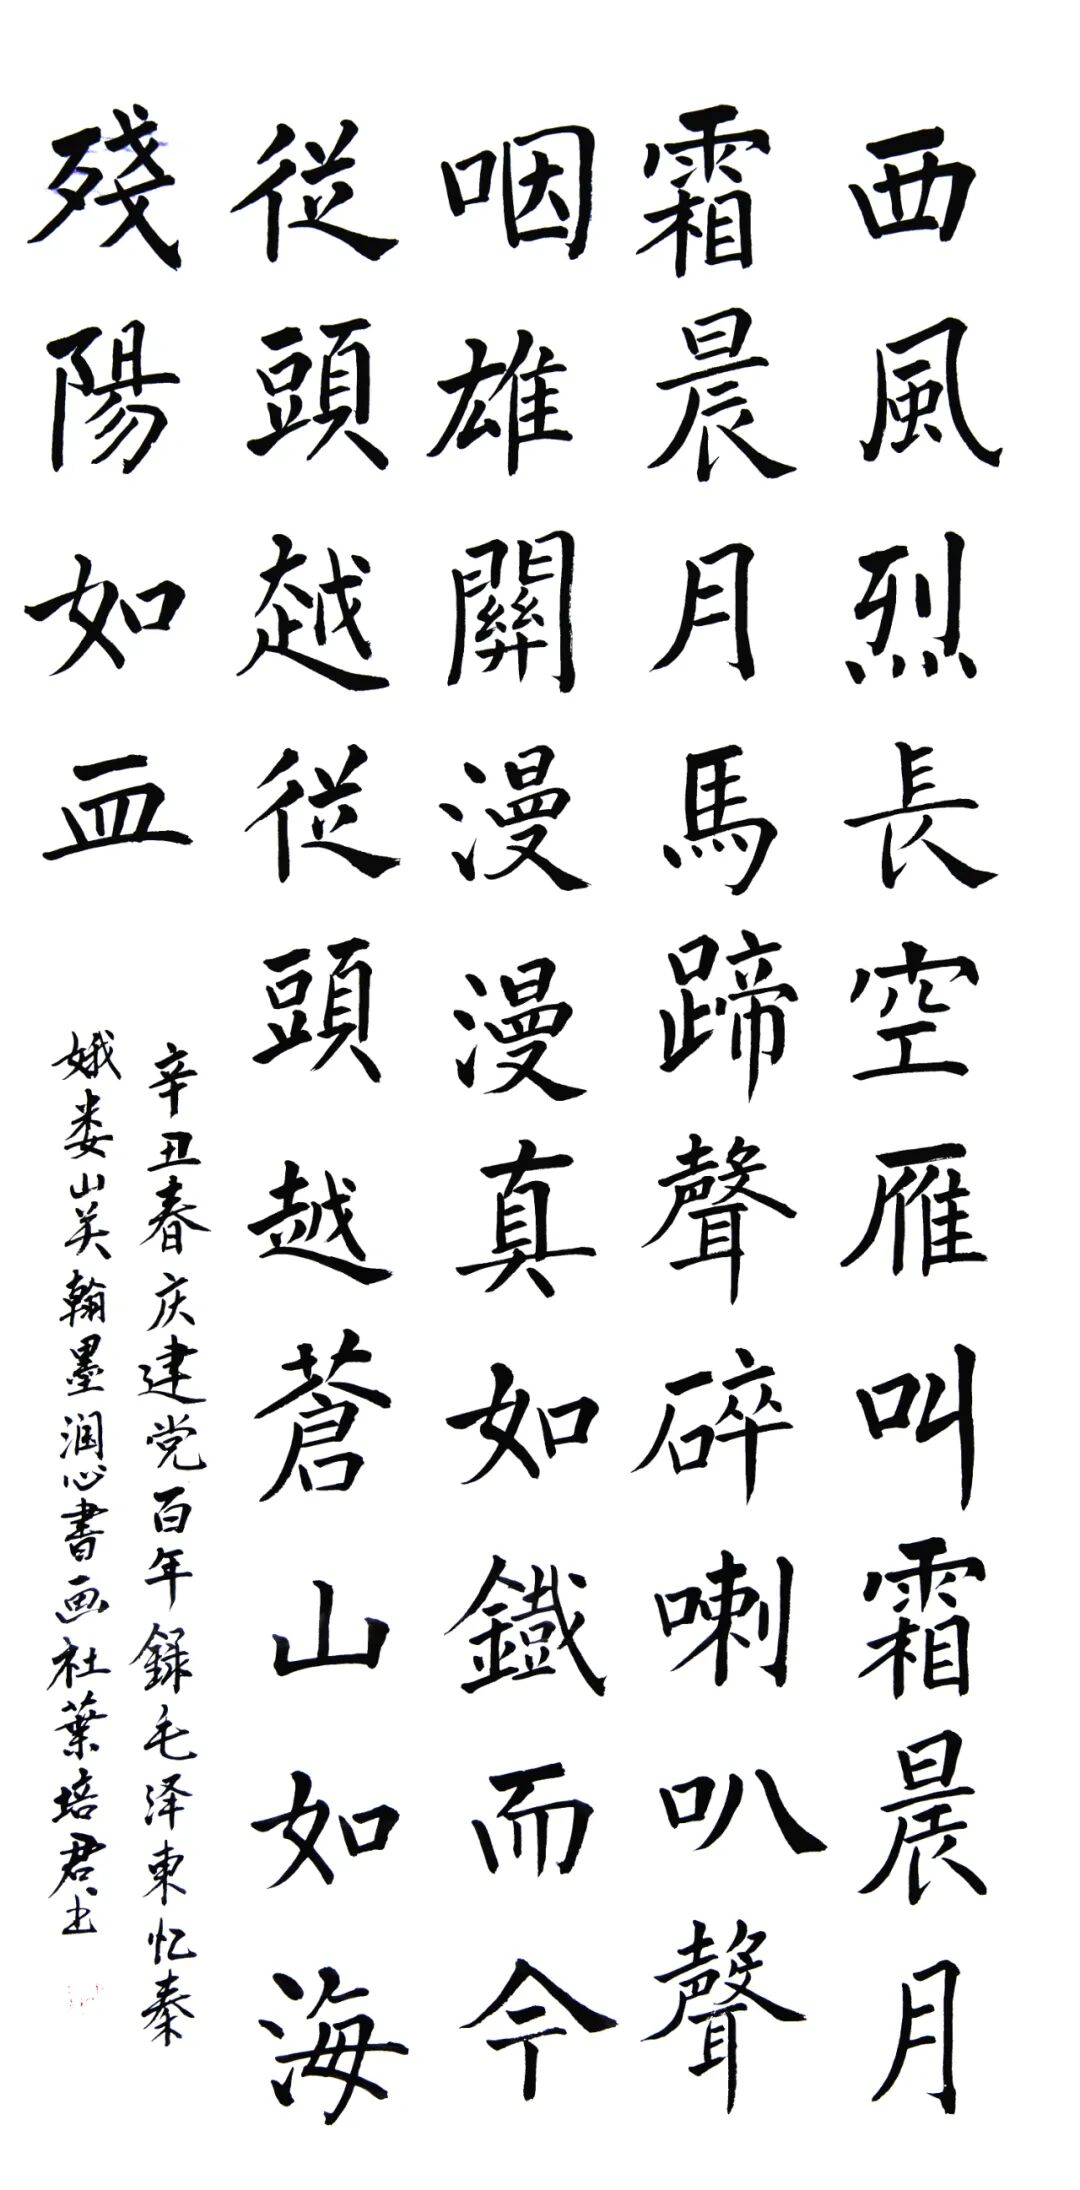 西風烈長空雁叫霜晨月
霜晨月馬蹄聲碎喇叭聲
咽雄關漫漫真如鐵而今
從頭越從頭越蒼山如海
殘陽如血
辛丑春庆建党百年録毛泽東忆秦
娥娄山关翰墨润心書画社葉培君书